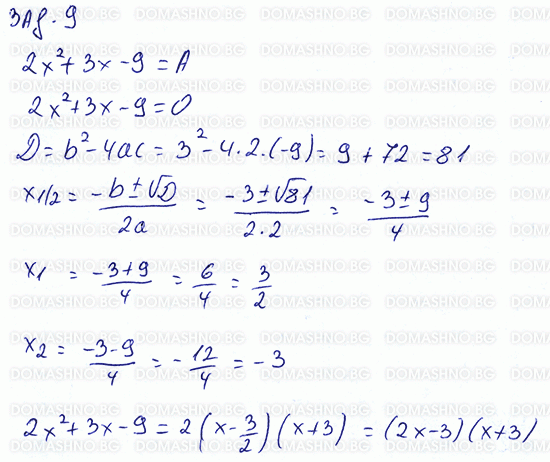 Зад. 9
2x² + 3x - 9 = A
2x² + 3x - 9 = 0
D = b² - 4ac = 3² - 4.2.(-9) = 9 + 72 = 81
x1/2 = (-b ± √D)/2a = (-3 ± √81)/2.2 = (-3 ± 9)/4
x1 = (-3+9)/4 = 6/4 = 3/2
x2 = (-3-9)/4 = -12/4 = -3
2x² + 3x - 9 = 2(x - 3/2)(x+3) = (2x-3)(x+3)
DOMASHNO.BG